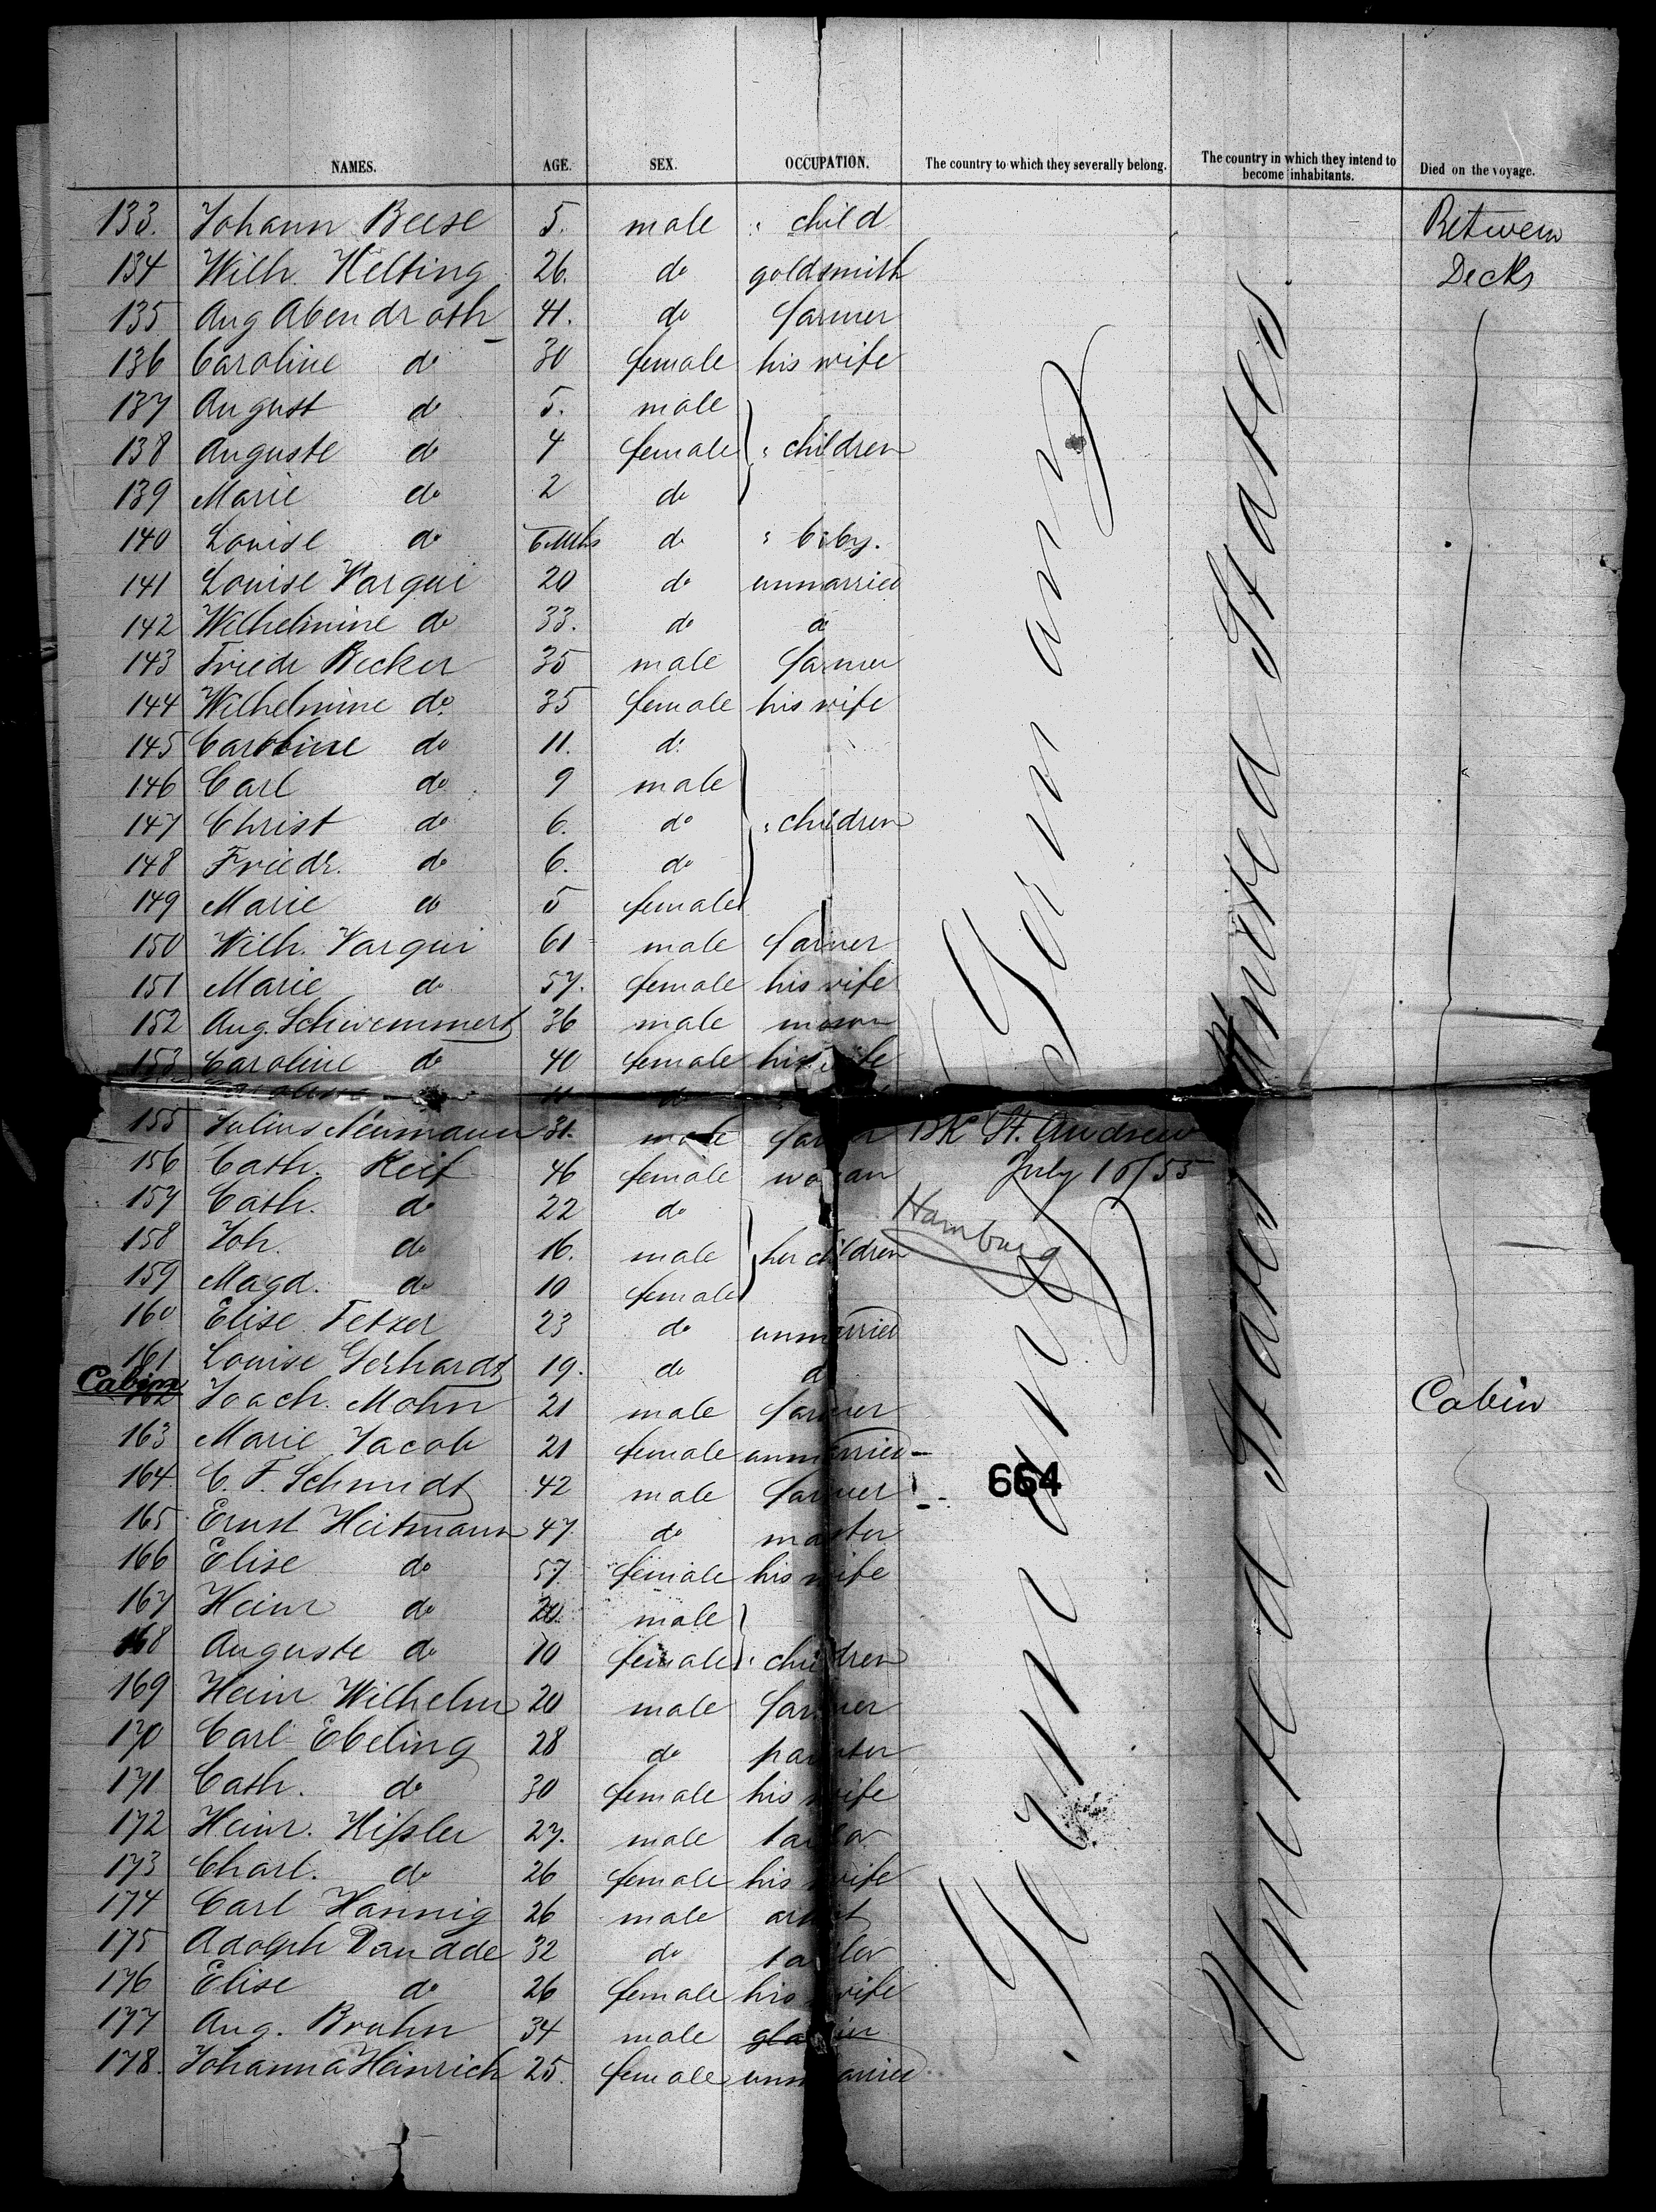 NAMES. AGE. SEX. OCCUPATION. The country to which they severally belong. The country in which they intend to become inhabitants. Died on the voyage.
133. Johann Beese 5. male " child Between
134 Wilh. Kelting 26. do goldsmith Decks
135 Aug Abendroth 41. do farmer
136 Caroline do 30 female his wife
137 August do 5. male
138 Auguste do 4 female " children
139 Marie do 2 do
140 Louise do 6 Mths do " baby.
141 Louise Varqui 20 do unmarried
142 Wilhelmine do 33. do do
143 Friedr Becker 35 male farmer
144 Wilhelmine do. 35 female his wife
145 Caroline do 11. do
146 Carl do 9 male
147 Christ do 6. do " children
148 Friedr. do 6. do
149 Marie do 5 female
150 Wilh. Varqui 61 male farmer
151 Marie do 57. female his wife
152 Aug. Schwemmert 36 male mason
153 Caroline do 40 female his wife
11 do
155 Julius Neumann 31. male farmer Bk St. Andrew
156 Cath. Reif 46 female woman July 16/55
157 Cath. do 22 do Hamburg
158 Joh. do 16. male her children
159 Magd. do 10 female
160 Elise Fetzer 23 do unmarried
161 Louise Gerhardt 19. do do
Cabin
162 Joach. Mohn 21 male farmer Cabin
163 Marie Jacob 21 female unmarried
164 C. F. Schmidt 42 male farmer 664
165 Ernst Heitmann 47 do
166 Elise do 57. female his wife
167 Heinr do 20. male
168 Auguste do 10 female " children
169 Heinr. Wilhelm 20 male farmer
170 Carl Ebeling 28 do painter
171 Cath. do 30 female his wife
172 Heinr. Kißler 27. male tailor
173 Charl. do 26 female his wife
174 Carl Hannig 26 male artist
175 Adolph Daudde 32 do tailor
176 Elise do 26 female his wife
177 Aug. Bruhn 34 male glazier
178. Johanna Heinrich 25. female unmarried
Germany
United States.
Germany
United States